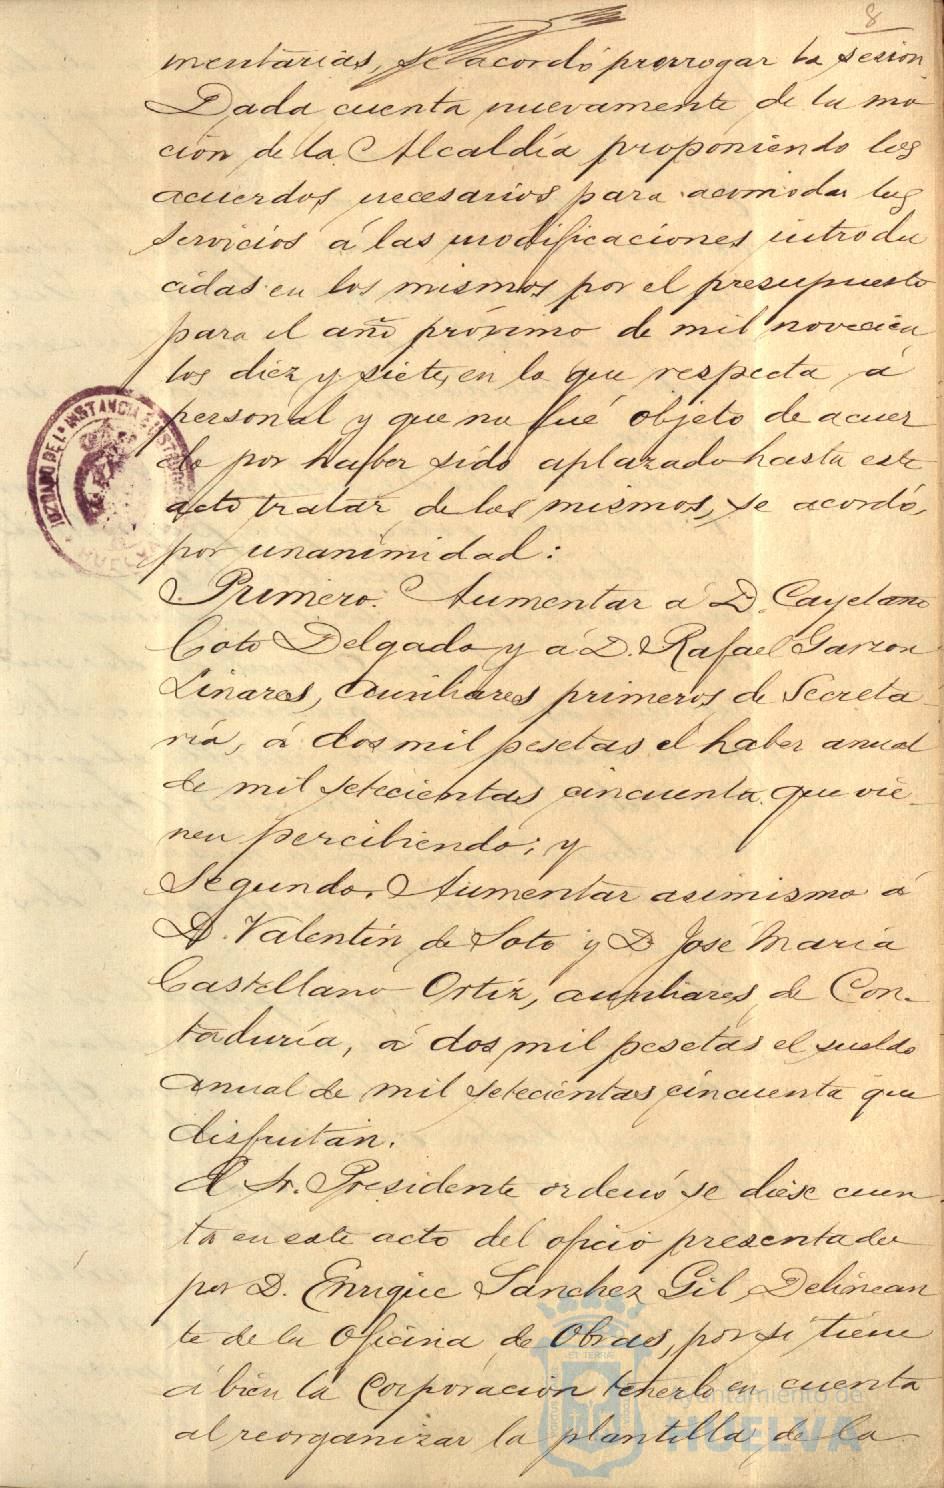 8
mentarias, se acordó prorrogar la sesion.
Dada cuenta nuevamente de la mo
ción de la Alcaldía proponiendo los
acuerdos necesarios para acomodar los
servicios á las modificaciones introdu
cidas en los mismos por el presupuesto
para el año próximo de mil novecien
tos diez y siete, en lo que respecta á
personal y que no fué objeto de acuer
do por haber sido aplazado hasta este
acto tratar de los mismos, se acordó,
por unanimidad:
Primero. Aumentar á D. Cayetano
Coto Delgado y á D. Rafael Garzon
Linares, auxiliares primeros de Secreta
ría, á dos mil pesetas el haber anual
de mil setecientas cincuenta que vie-
nen percibiendo; y
Segundo. Aumentar asimismo á
D. Valentín de Soto y D. José María
Castellano Ortiz, auxiliares de Con-
taduría, á dos mil pesetas el sueldo
anual de mil setecientas cincuenta que
disfrutan.
El Sr. Presidente ordenó se diese cuen
ta en este acto del oficio presentado
por D. Enrique Sanchez Gil, Delinean
te de la Oficina de Obras, por si tiene
á bien la Corporación tenerlo en cuenta
al reorganizar la plantilla de la
JUZGADO DE 1ª INSTANCIA É
Ayuntamiento de
HUELVA